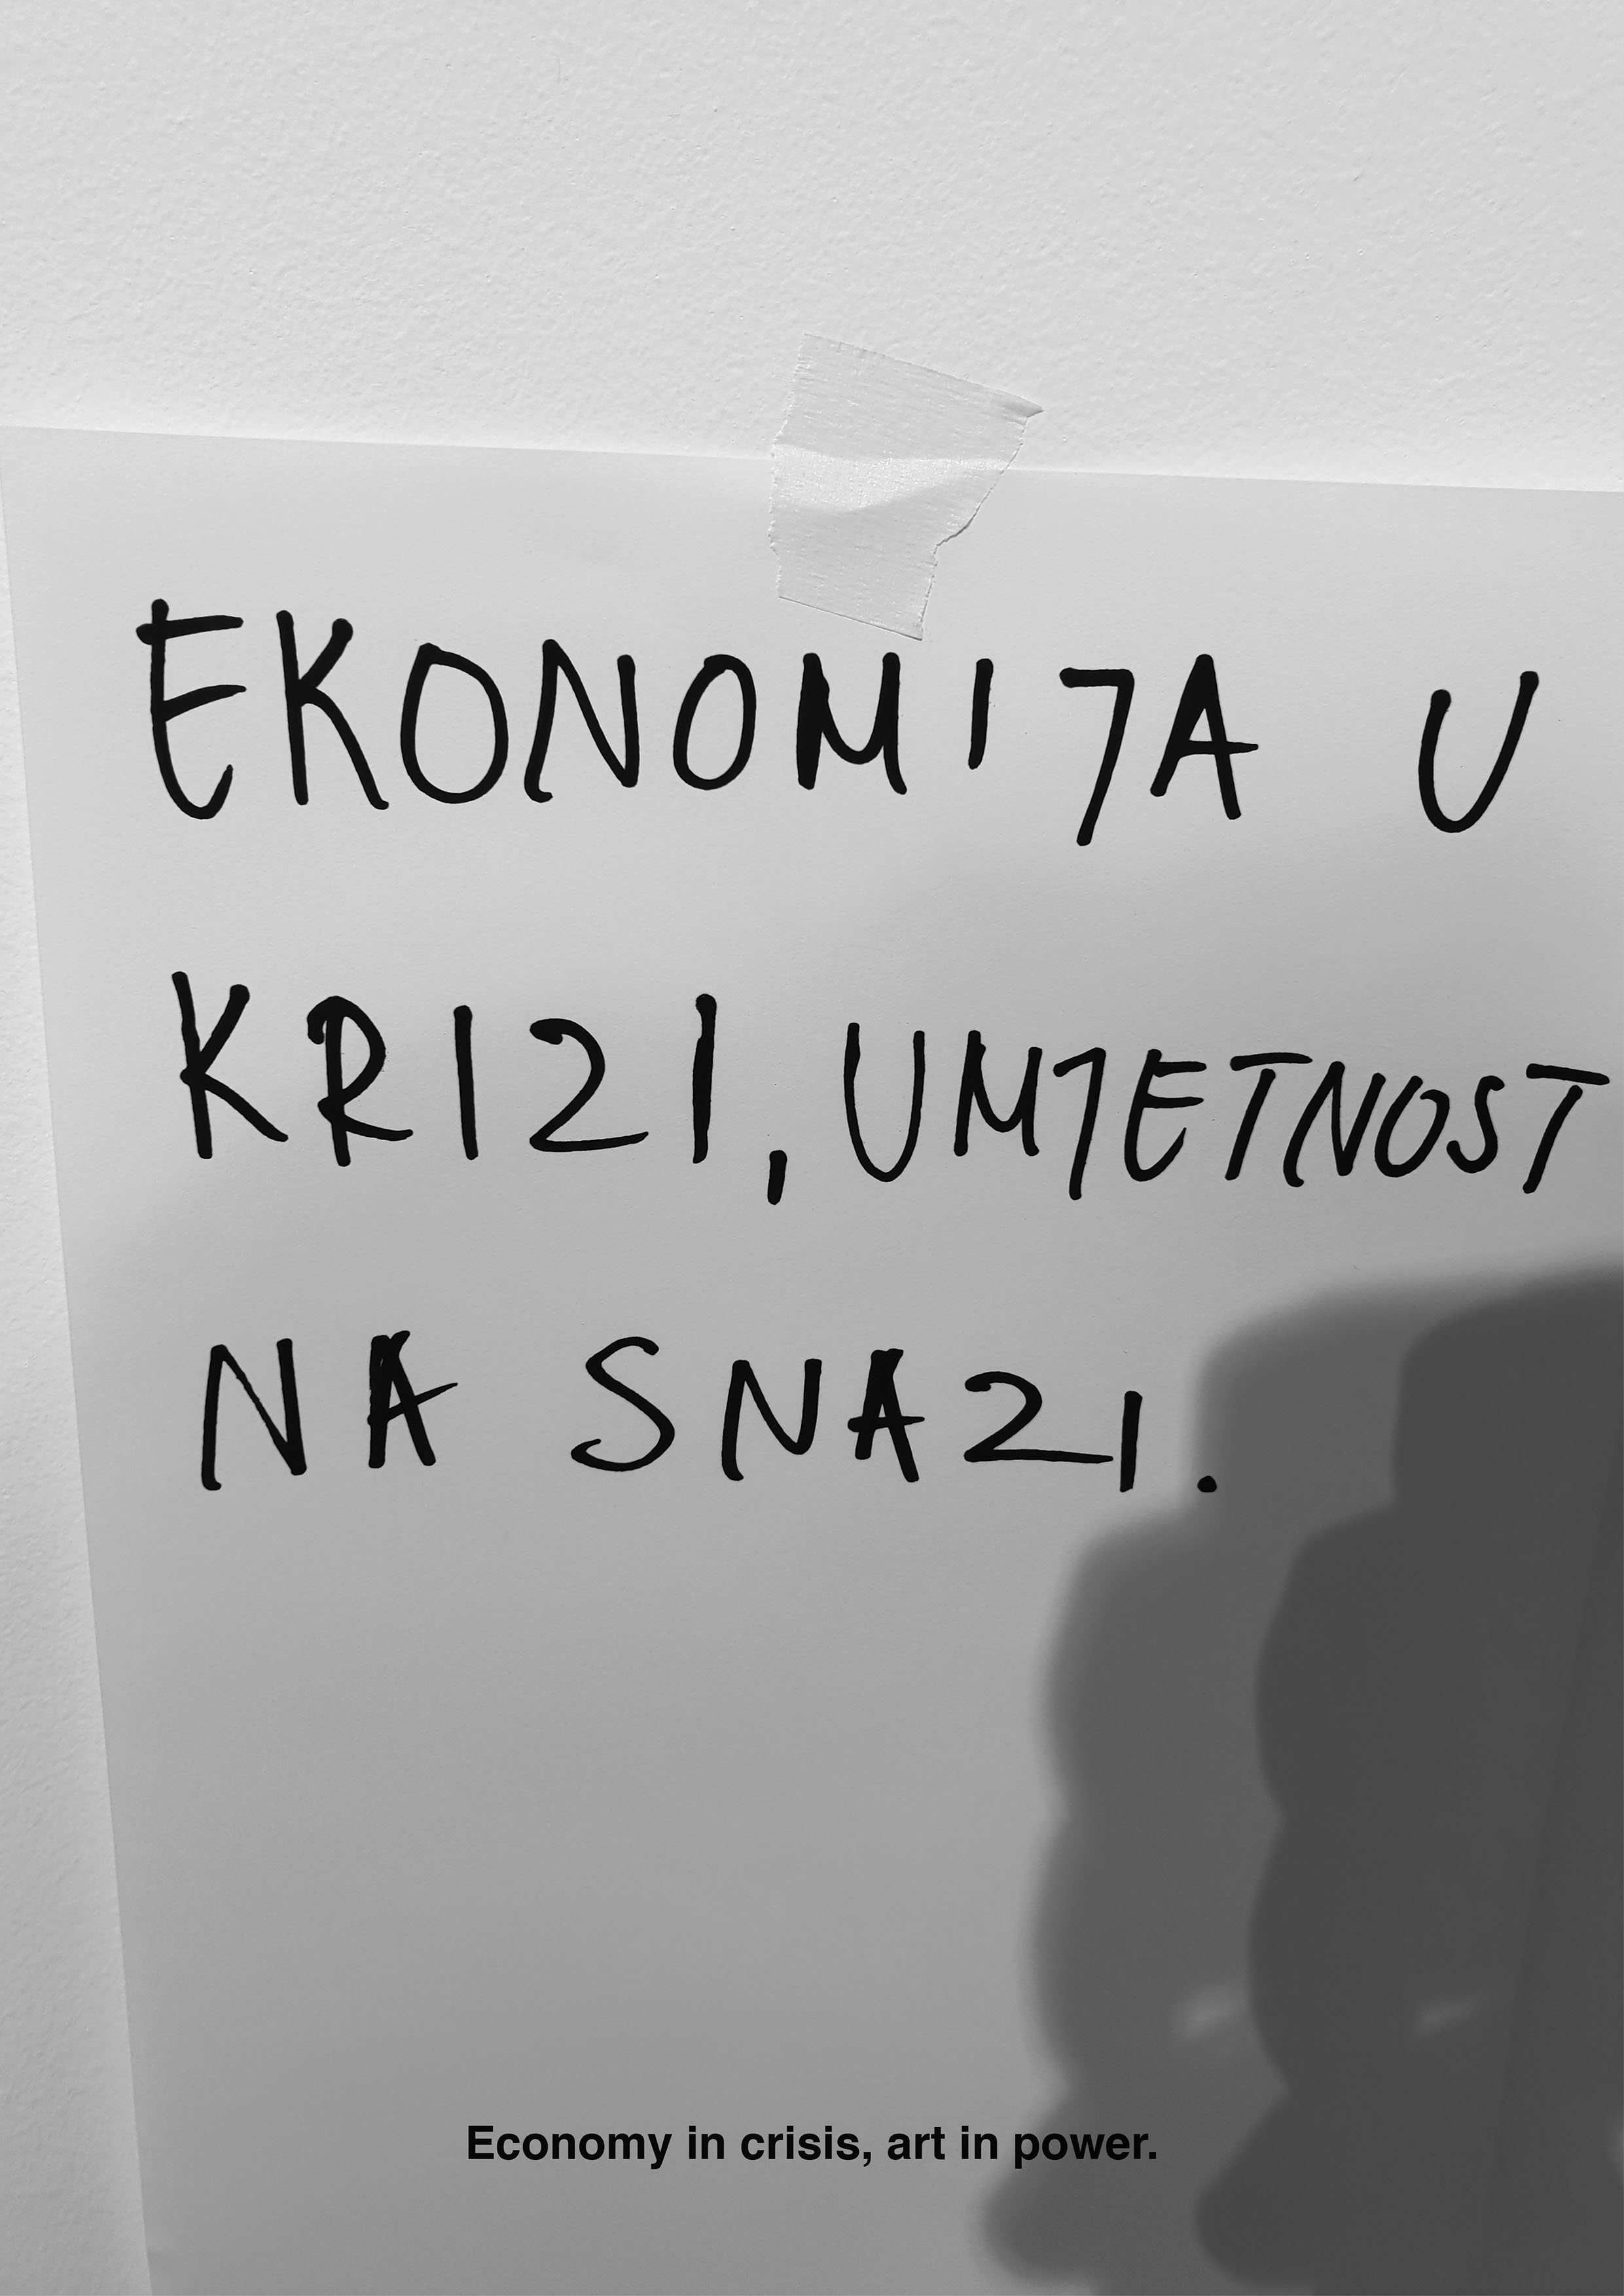 EKONOMIJA U
KRIZI, UMJETNOST
NA SNAZI.
Economy in crisis, art in power.